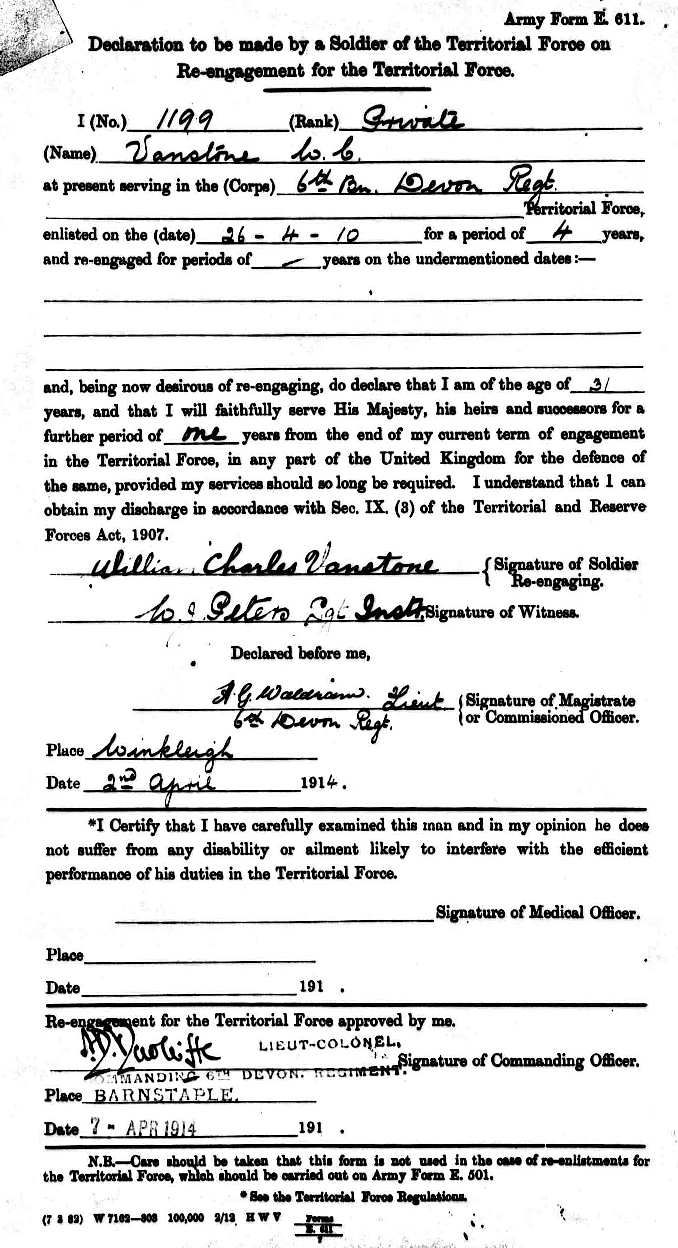 Army Form E. 611.
Declaration to be made by a Soldier of the Territorial Force on
Re-engagement for the Territorial Force.
I (No.) 1199 (Rank) Private
(Name) Vanstone W. C.
at present serving in the (Corps) 6th Bn. Devon Regt.
Territorial Force,
enlisted on the (date) 26 - 4 - 10 for a period of 4 years,
and re-engaged for periods of — years on the undermentioned dates:—
and, being now desirous of re-engaging, do declare that I am of the age of 31
years, and that I will faithfully serve His Majesty, his heirs and successors for a
further period of one years from the end of my current term of engagement
in the Territorial Force, in any part of the United Kingdom for the defence of
the same, provided my services should so long be required. I understand that I can
obtain my discharge in accordance with Sec. IX. (3) of the Territorial and Reserve
Forces Act, 1907.
William Charles Vanstone Signature of Soldier
Re-engaging.
W J Peters Sgt Instr, Signature of Witness.
Declared before me,
A. G. Waldram. Lieut Signature of Magistrate
6th Devon Regt. or Commissioned Officer.
Place Winkleigh
Date 2nd April 1914.
*I Certify that I have carefully examined this man and in my opinion he does
not suffer from any disability or ailment likely to interfere with the efficient
performance of his duties in the Territorial Force.
Signature of Medical Officer.
Place
Date 191 .
Re-engagement for the Territorial Force approved by me.
LIEUT-COLONEL,
Signature of Commanding Officer.
COMMANDING 6TH DEVON. REGIMENT.
Place BARNSTAPLE.
Date 7 - APR 1914 191 .
N.B.—Care should be taken that this form is not used in the case of re-enlistments for
the Territorial Force, which should be carried out on Army Form E. 501.
* See the Territorial Force Regulations.
(7 3 62) W 7162—803 100,000 2/12 H W V Forms
E. 611
7